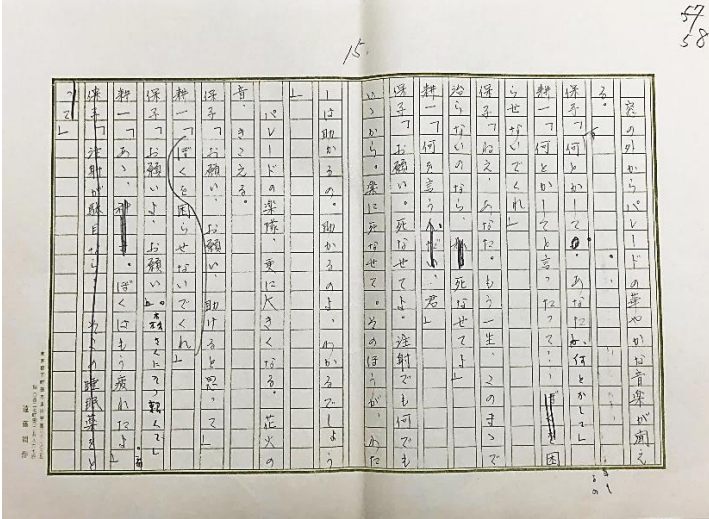 57
58
15.
窓の外からパレードの華やかな音楽が聞え
る。
保子「何とかして。あなた、何とかして」
耕一「何とかしてと言ったって‥‥困
らせないでくれ」
保子「ねえ、あなた。もう一生、このまゝで
治らないのなら、死なせてよ」
耕一「何を言うんだい、君」
保子「お願い。死なせてよ。注射でも何でも
いゝから。楽に死なせて。そのほうが、わた
しは助かるの。助かるのよ、わかるでしょう
」
パレードの楽隊、更に大きくなる。花火の
音、きこえる。
保子「お願い、お願い、助けると思って」
耕一「ぼくを困らせないでくれ」
保子「お願いよ、お願い
耕一「あゝ、ぼくはもう疲れたよ」
保子「注射が駄目なら、そこの睡眠薬をと
って」